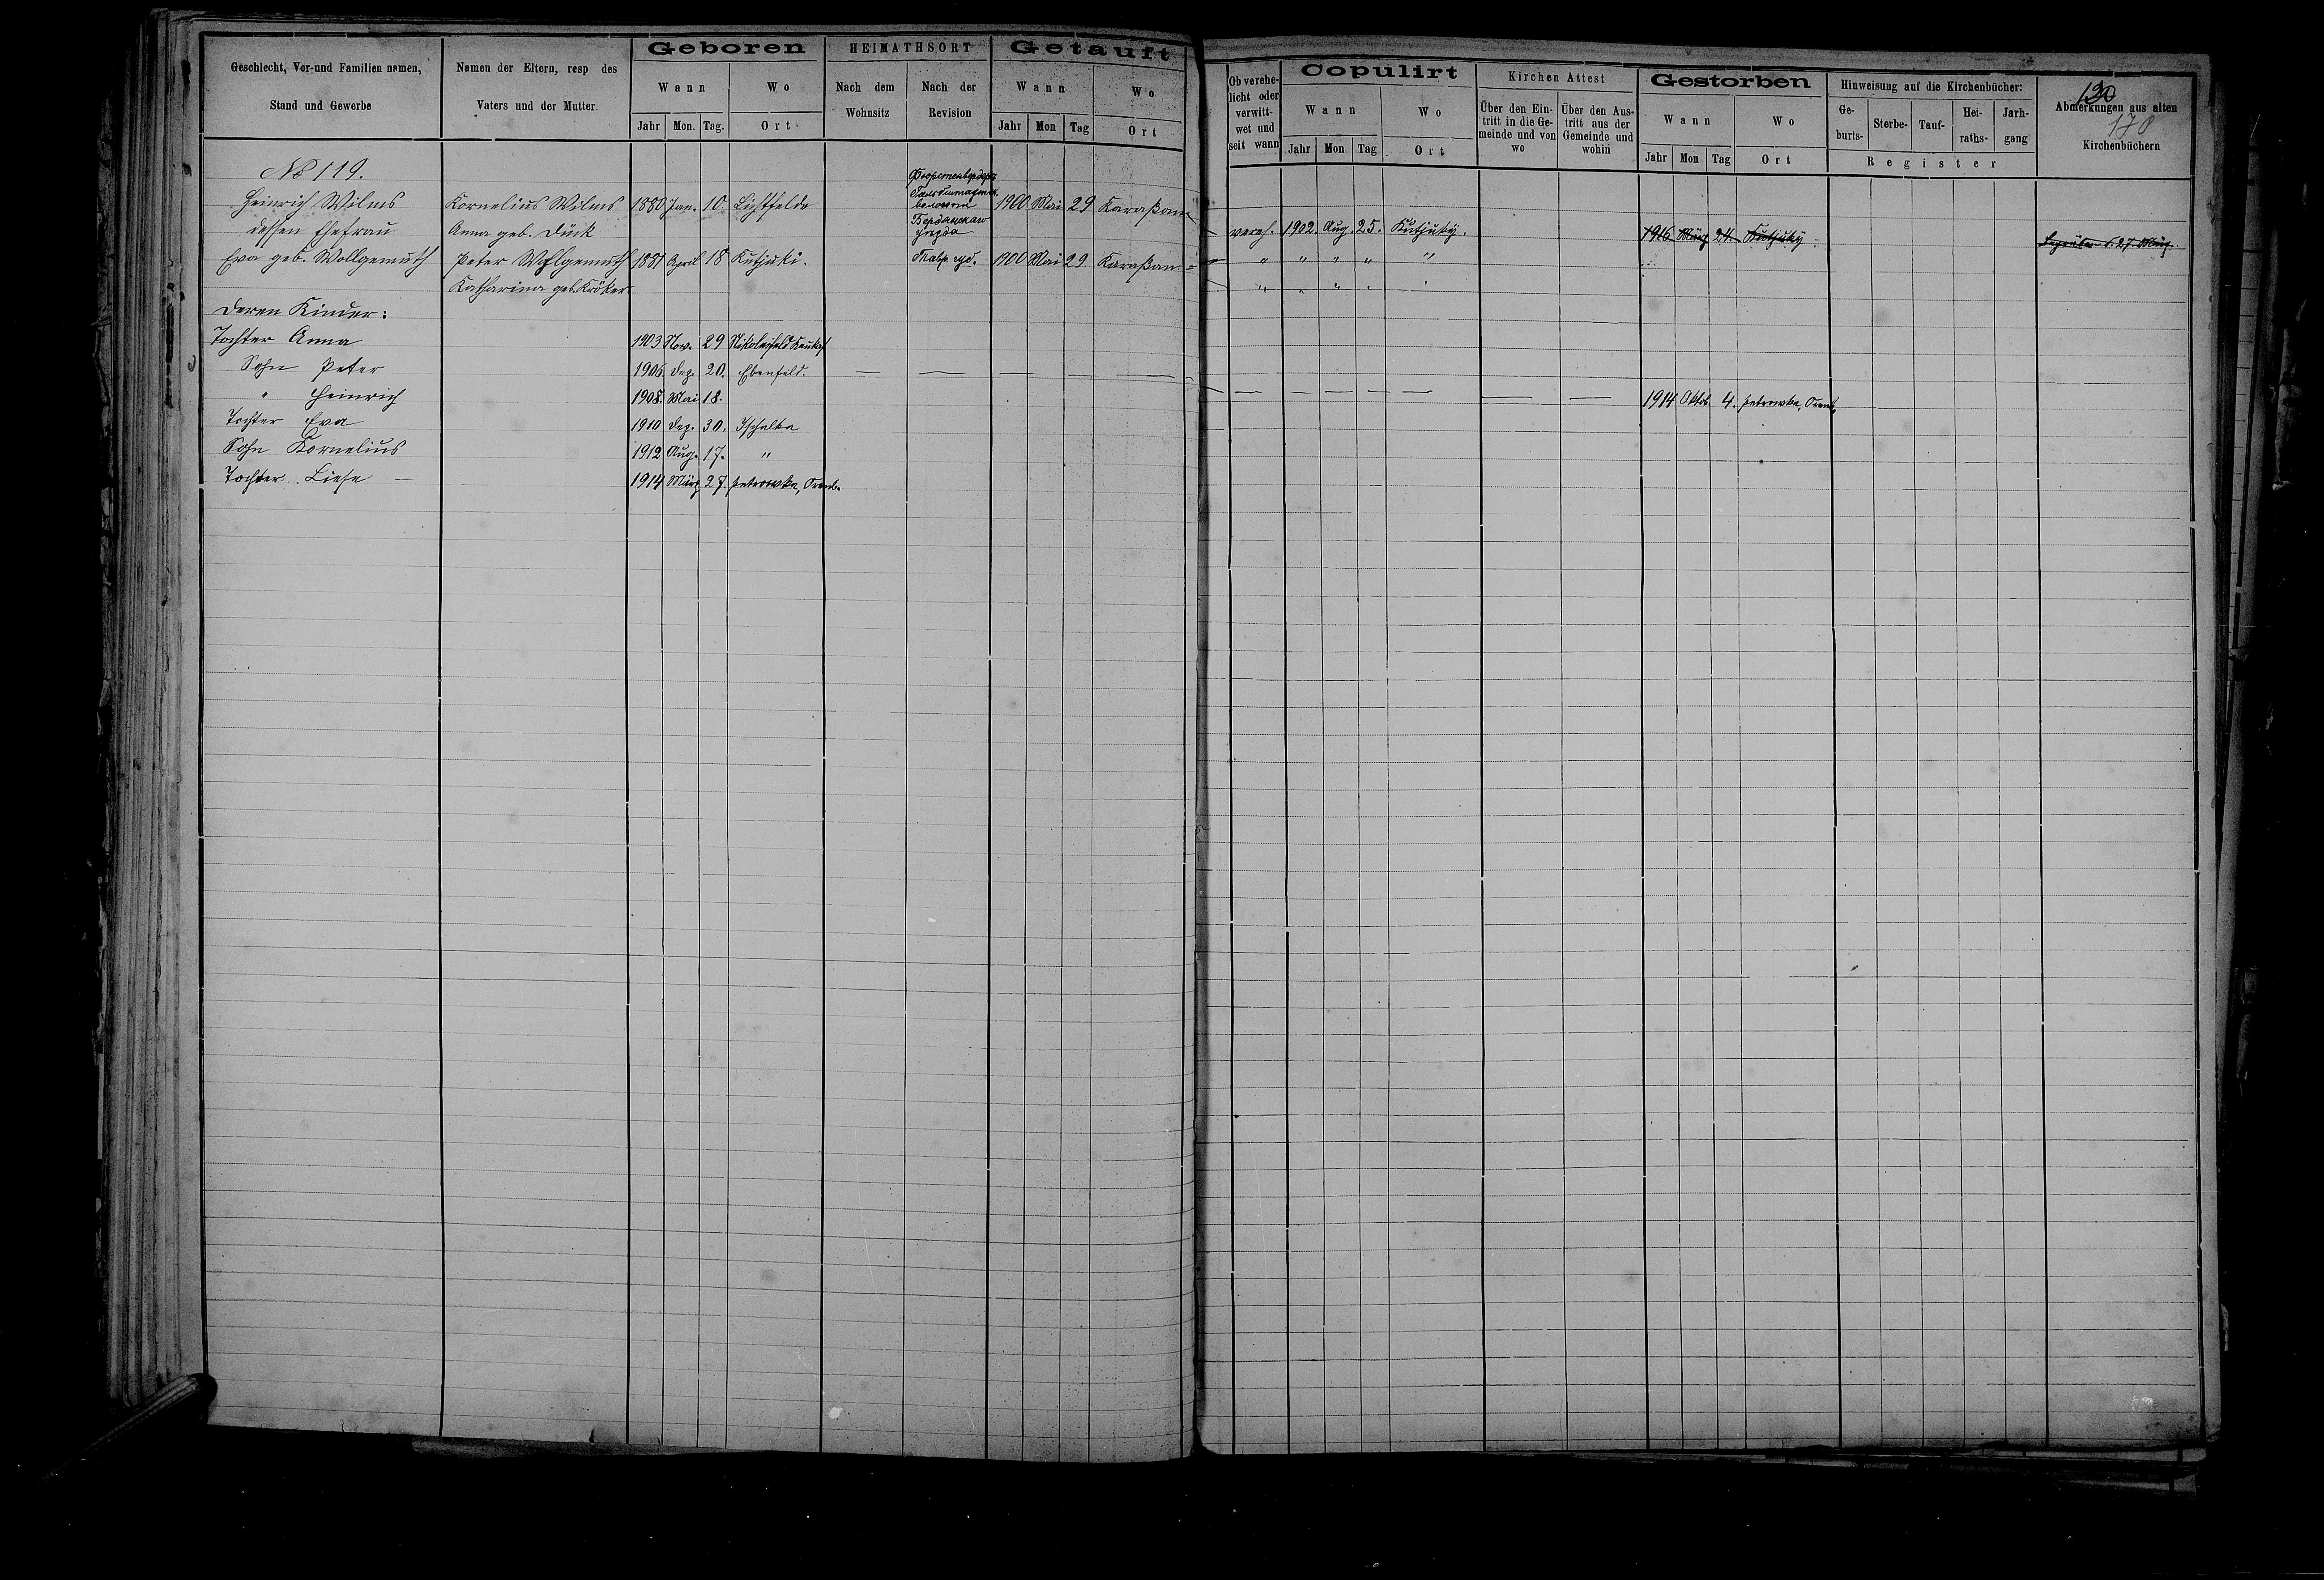 Geschlecht, Vor-und Familien namen,
Stand und Gewerbe
Namen der Eltern, resp des
Vaters und der Mutter.
Geboren
Wann
Wo
Jahr Mon. Tag. Ort
HEIMATHSORT
Nach dem
Wohnsitz
Nach der
Revision
Getauft
Wann
Wo
Jahr Mon Tag Ort
Ob verehe-
licht oder
verwitt-
wet und
seit wann
Copulirt
Wann
Wo
Jahr Mon Tag Ort
Kirchen Attest
Über den Ein-
tritt in die Ge-
meinde und von
wo
Über den Aus-
tritt aus der
Gemeinde und
wohin
Gestorben
Wann
Wo
Jahr Mon Tag Ort
Hinweisung auf die Kirchenbücher:
Ge-
burts-
Sterbe-
Tauf-
Hei-
raths-
Jarh-
gang
Register
Abmerkungen aus alten
178
Kirchenbüchern
№ 119.
Heinrich Wilms Kornelius Wilms 1880 Jan. 10. Lichtfelde 1900 Mai 29 Karaßan
dessen Ehefrau Anna geb. Dück Бердянскаго уезда
vereh. 1902. Aug. 25. Kutjuky. 1916 März 24. Kutjuky
Eva geb. Wollgemuth Peter Wohlgemuth 1881 April 18 Kutjuki. Тавр. губ. 1900 Mai 29 Karaßan
" " " " "
Katharina geb. Kröker
Deren Kinder:
Tochter Anna 1903 Nov. 29 Nikolaifeld
Sohn Peter 1906. Dez. 20. Ebenfeld.
" Heinrich 1908. Mai 18. 1914 Oktob. 4. Petrowka, Orenb.
Tochter Eva 1910 Dez. 30. Ischalka
Sohn Kornelius 1912 Aug. 17. "
Tochter Liese 1914 März 27. Petrowka, Orenb.